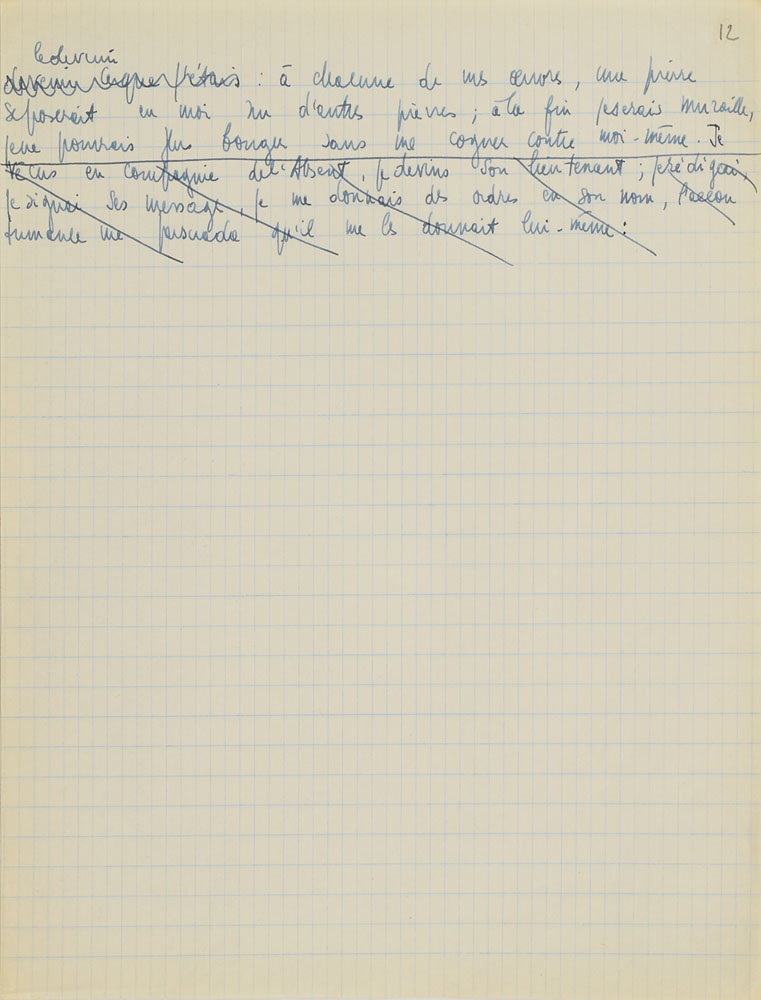 12
le devenir
devenir ce que j'étais : à chacune de mes œuvres, une pierre
se poserait en moi sur d'autres pierres ; à la fin je serais muraille,
je ne pourrais plus bouger sans me cogner contre moi-même. Je
vécus en compagnie de l'Absent, je devins son lieutenant ; je rédigeai,
je signai ses messages, je me donnais des ordres en son nom,
fumance me persuada qu'il me les donnait lui-même :